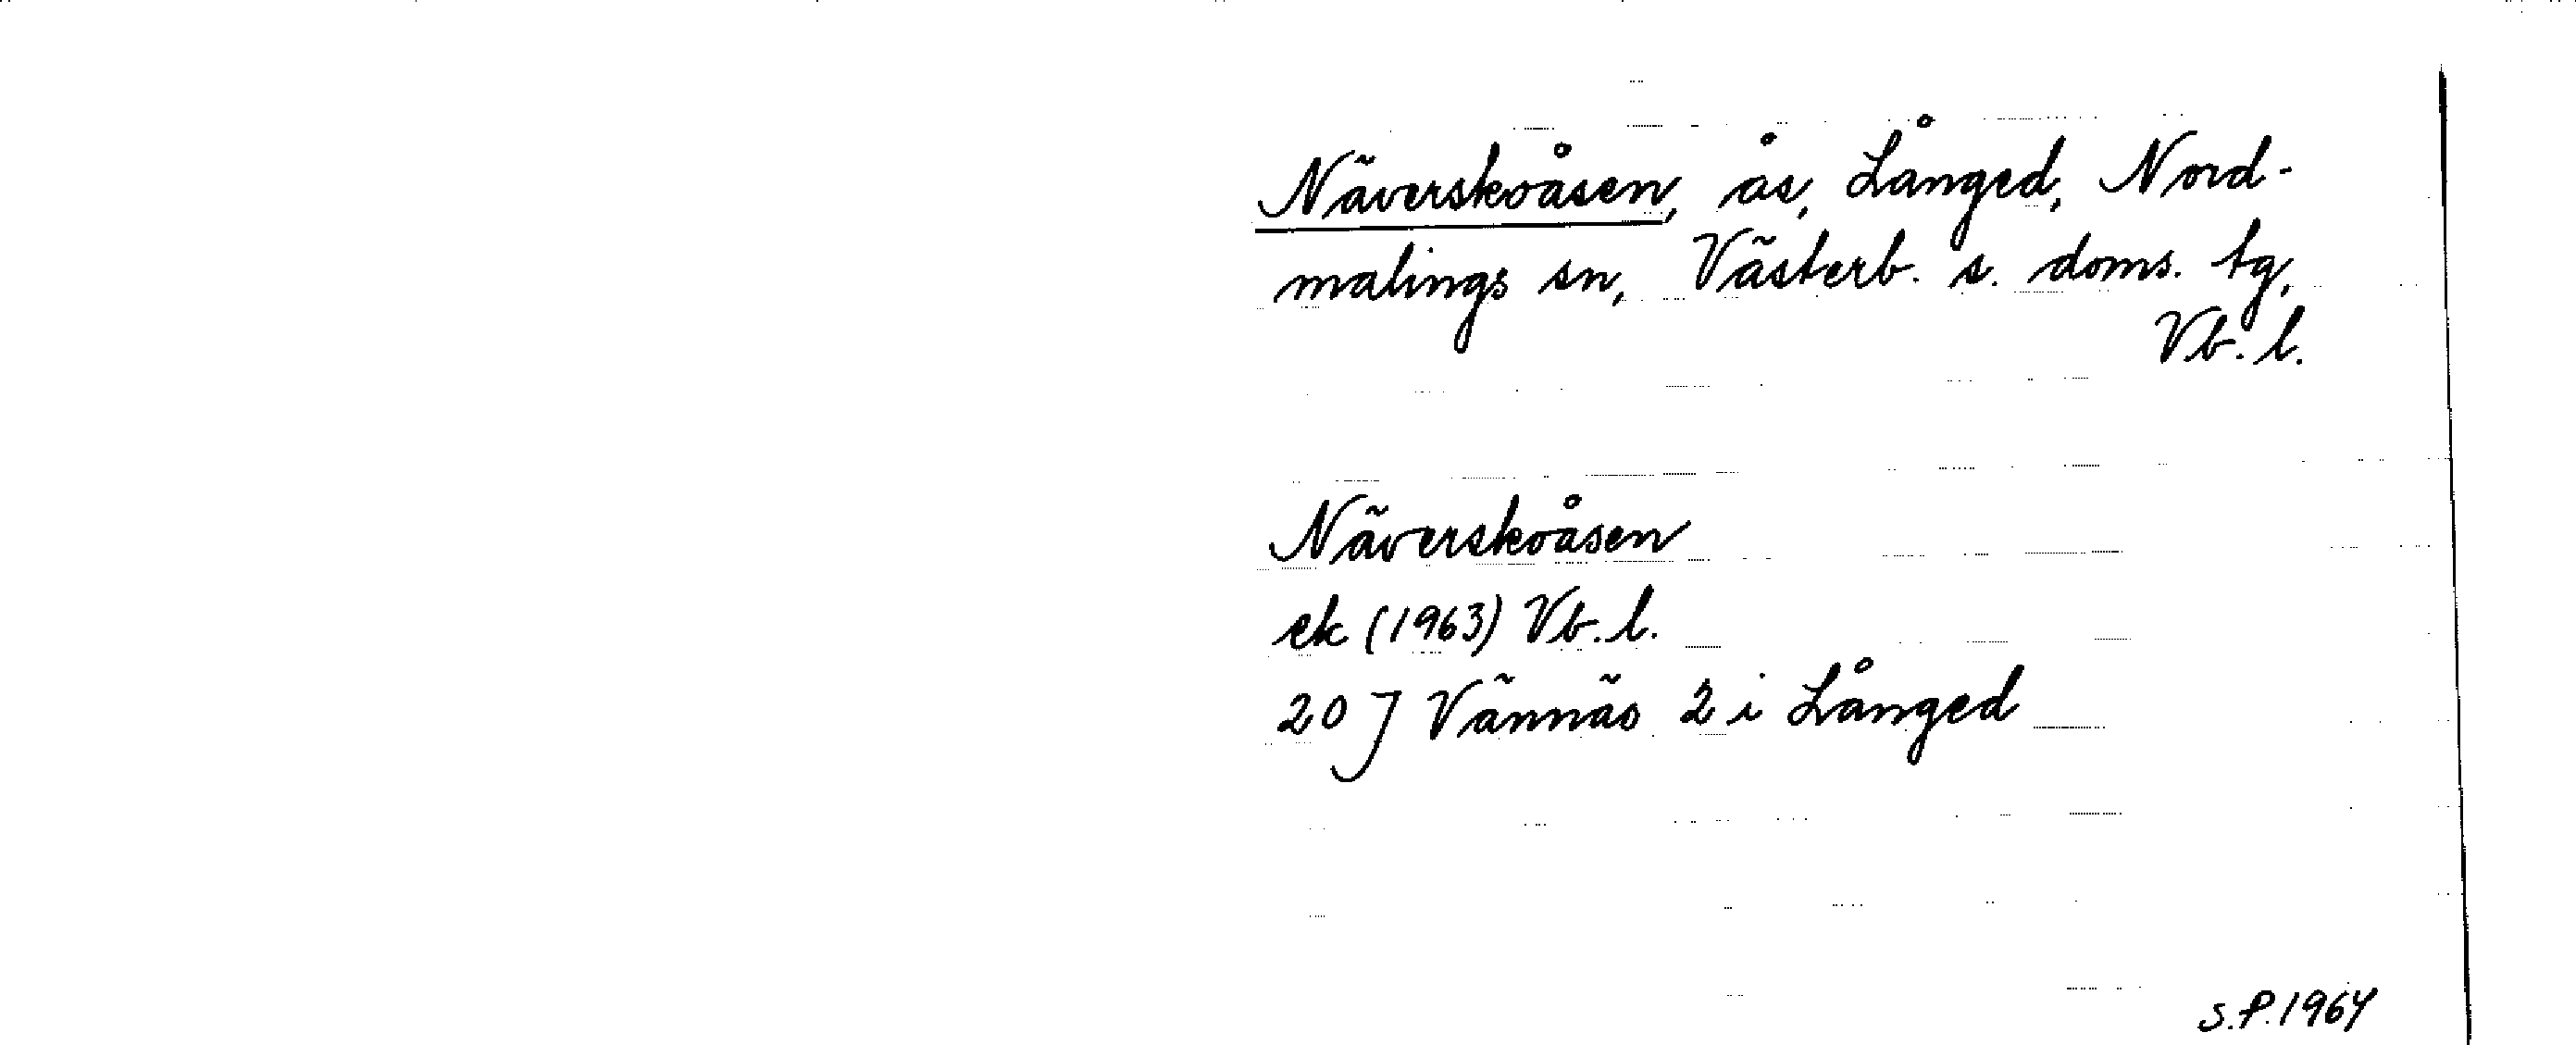 Näverskoåsen, ås, Långed, Nord-
malings sn, Västerb. s. doms. tg,
Vb. l.
Näverskoåsen
ek (1963) Vb. l.
20 J Vännäs 2 i Långed
S.P. 1964